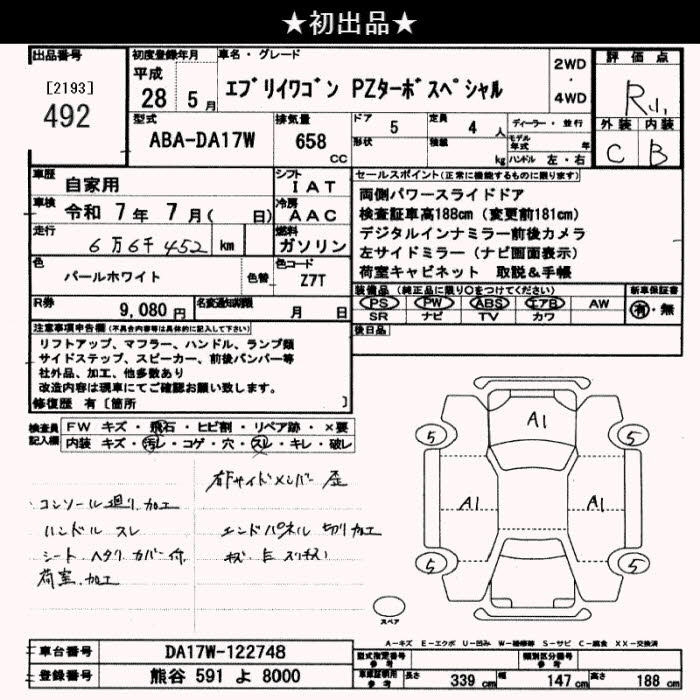 ★初出品★
出品番号
[2193]
492
初度登録年月
平成
28 5月
車名・グレード
エブリイワゴン PZターボスペシャル
2WD
・
4WD
評価点
R
外装 内装
C B
型式
ABA-DA17W
排気量
658
CC
ドア
5
定員
4 人
ディーラー・並行
形状
積載
kg
モデル年式 年
ハンドル 左・右
車歴
自家用
シフト
IAT
車検
令和 7年 7月( 日)
冷房
AAC
走行
6万6千452 km
燃料
ガソリン
色
パールホワイト
色替
色コード
Z7T
R券
9,080円
名変通知期限
月 日
セールスポイント(正常に機能するものに限ります)
両側パワースライドドア
検査証車高188cm(変更前181cm)
デジタルインナミラー前後カメラ
左サイドミラー(ナビ画面表示)
荷室キャビネット 取説&手帳
装備品(純正品に限り○をつけてください)
新車保証書
PS PW ABS エアB AW
有・無
SR ナビ TV カワ
後日品
注意事項申告欄(不具合内容等は具体的に記入して下さい)
リフトアップ、マフラー、ハンドル、ランプ類
サイドステップ、スピーカー、前後バンパー等
社外品、加工、他多数あり
改造内容は現車にてご確認お願い致します。
修復歴 有[箇所 ]
検査員
記入欄
FW キズ・飛石・ヒビ割・リペア跡・×要
内装 キズ・汚レ・コゲ・穴・スレ・キレ・破レ
右Fサイドメンバー 歪
コンソール廻り加工
ハンドル スレ
エンドパネル 切り加工
シート ヘタリ カバー付
荷室 加工
A1
5 5
A1 A1
5 5
スペア
A-キズ E-エクボ U-凹み W-補修跡 S-サビ C-腐食 XX-交換済
車台番号
DA17W-122748
型式指定番号
参考
類別区分番号
参考
登録番号
熊谷 591 よ 8000
車庫証明用
参考
長さ 339 cm 幅 147 cm 高さ 188 cm